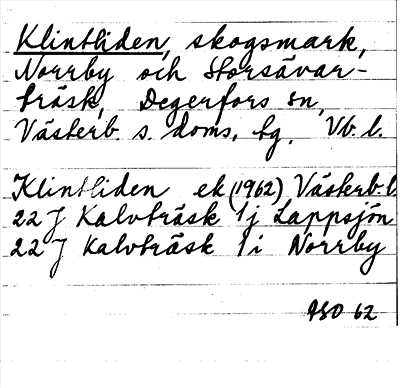 Klintliden, skogsmark,
Norrby och Storsävar-
träsk, Degerfors sn,
Västerb. s. doms. tg, Vb. l.
Klintliden ek (1962) Västerb. l.
22 J Kalvträsk 1j Lappsjön
22 J Kalvträsk 1i Norrby
ASO 62